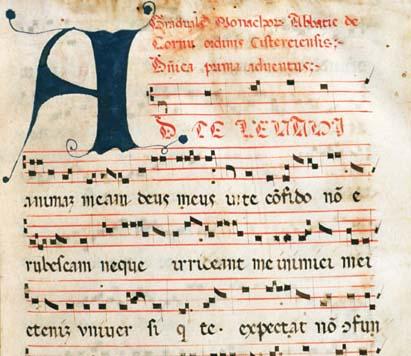 Graduale Monachor Abbatie de
Cornu ordinis Cisterciensis;-
Dñica prima adventus;-
AD TE LEVAVI
animaz meam deus meus in te cōfido nō e
rubescam neque irrideant me inimici mei
eteniz vniuer si q te · expectat nō ↄfun